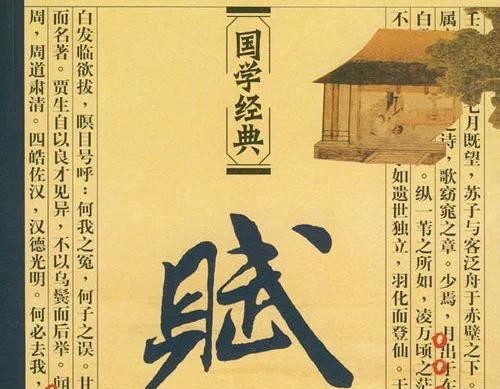 壬七月既望，苏子与客泛舟于赤壁之下。
属之诗，歌窈窕之章。少焉，月出于东
白。纵一苇之所如，凌万顷之茫
不如遗世独立，羽化而登仙。于
国学经典
赋
白发临欲拔，瞑目号呼：何我之冤，何子之误。甘
而名著。贾生自以良才见异，不以乌鬓而后举。闻
周，周道肃清。四皓佐汉，汉德光明。何必去我，